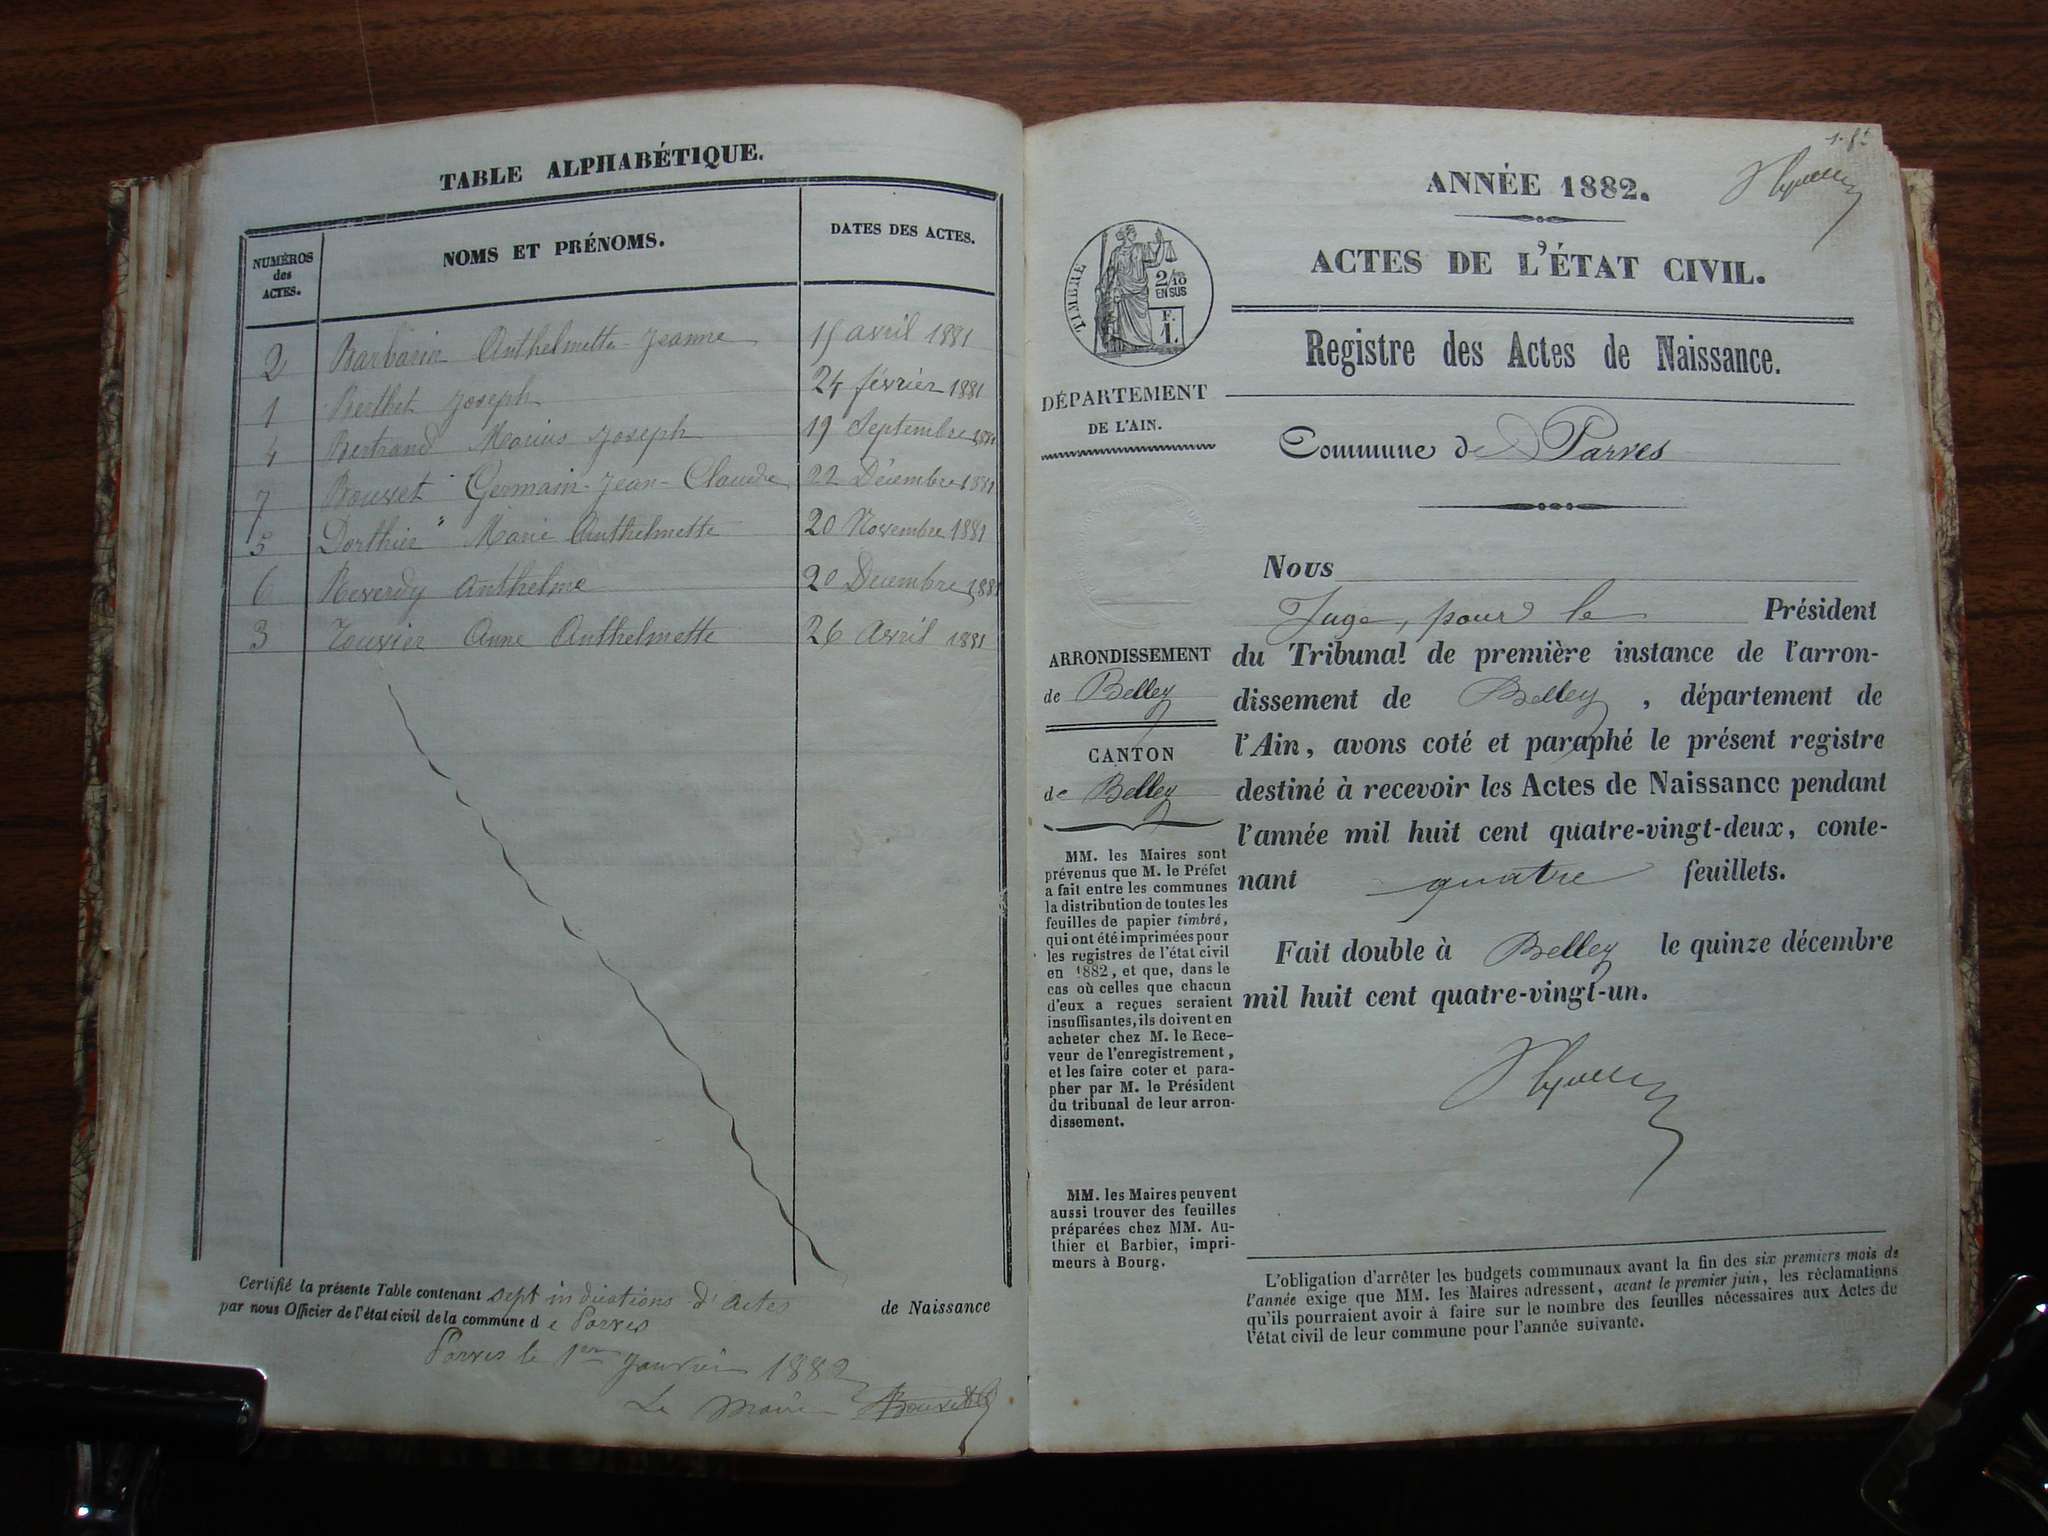 TABLE ALPHABÉTIQUE.
NUMÉROS des ACTES. NOMS ET PRÉNOMS. DATES DES ACTES.
2 Barbarin Anthelmette Jeanne 15 avril 1881
1 Berthet Joseph 24 février 1881
4 Bertrand Marius Joseph 19 Septembre 1881
7 Bouvet Germain-Jean-Claude 22 Décembre 1881
5 Dorthier Marie Anthelmette 20 Novembre 1881
6 Reverdy Anthelme 20 Décembre 1881
3 Touvier Anne Anthelmette 26 Avril 1881
Certifié la présente Table contenant sept indications d'actes de Naissance
par nous Officier de l'état civil de la commune de Parves
Parves le 1er Janvier 1882
Le Maire
ANNÉE 1882.
ACTES DE L'ÉTAT CIVIL.
Registre des Actes de Naissance.
TIMBRE
2/10
EN SUS
F.
1.
DÉPARTEMENT
DE L'AIN.
Commune de Parves
Nous
Juge, pour le Président
du Tribunal de première instance de l'arron-
dissement de Belley, département de
l'Ain, avons coté et paraphé le présent registre
destiné à recevoir les Actes de Naissance pendant
l'année mil huit cent quatre-vingt-deux, conte-
nant quatre feuillets.
Fait double à Belley le quinze décembre
mil huit cent quatre-vingt-un.
ARRONDISSEMENT
de Belley
CANTON
de Belley
MM. les Maires sont
prévenus que M. le Préfet
a fait entre les communes
la distribution de toutes les
feuilles de papier timbré,
qui ont été imprimées pour
les registres de l'état civil
en 1882, et que, dans le
cas où celles que chacun
d'eux a reçues seraient
insuffisantes, ils doivent en
acheter chez M. le Rece-
veur de l'enregistrement,
et les faire coter et para-
pher par M. le Président
du tribunal de leur arron-
dissement.
MM. les Maires peuvent
aussi trouver des feuilles
préparées chez MM. Au-
thier et Barbier, impri-
meurs à Bourg.
L'obligation d'arrêter les budgets communaux avant la fin des six premiers mois de
l'année exige que MM. les Maires adressent, avant le premier juin, les réclamations
qu'ils pourraient avoir à faire sur le nombre des feuilles nécessaires aux Actes de
l'état civil de leur commune pour l'année suivante.